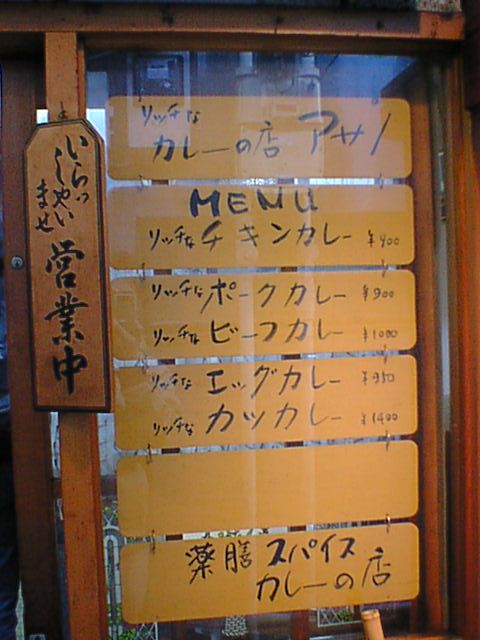 いらっ
しゃい
ませ
営業中
リッチな
カレーの店 アサノ
MENU
リッチなチキンカレー ¥900
リッチなポークカレー ¥900
リッチなビーフカレー ¥1000
リッチなエッグカレー ¥950
リッチなカツカレー ¥1400
薬膳スパイス
カレーの店